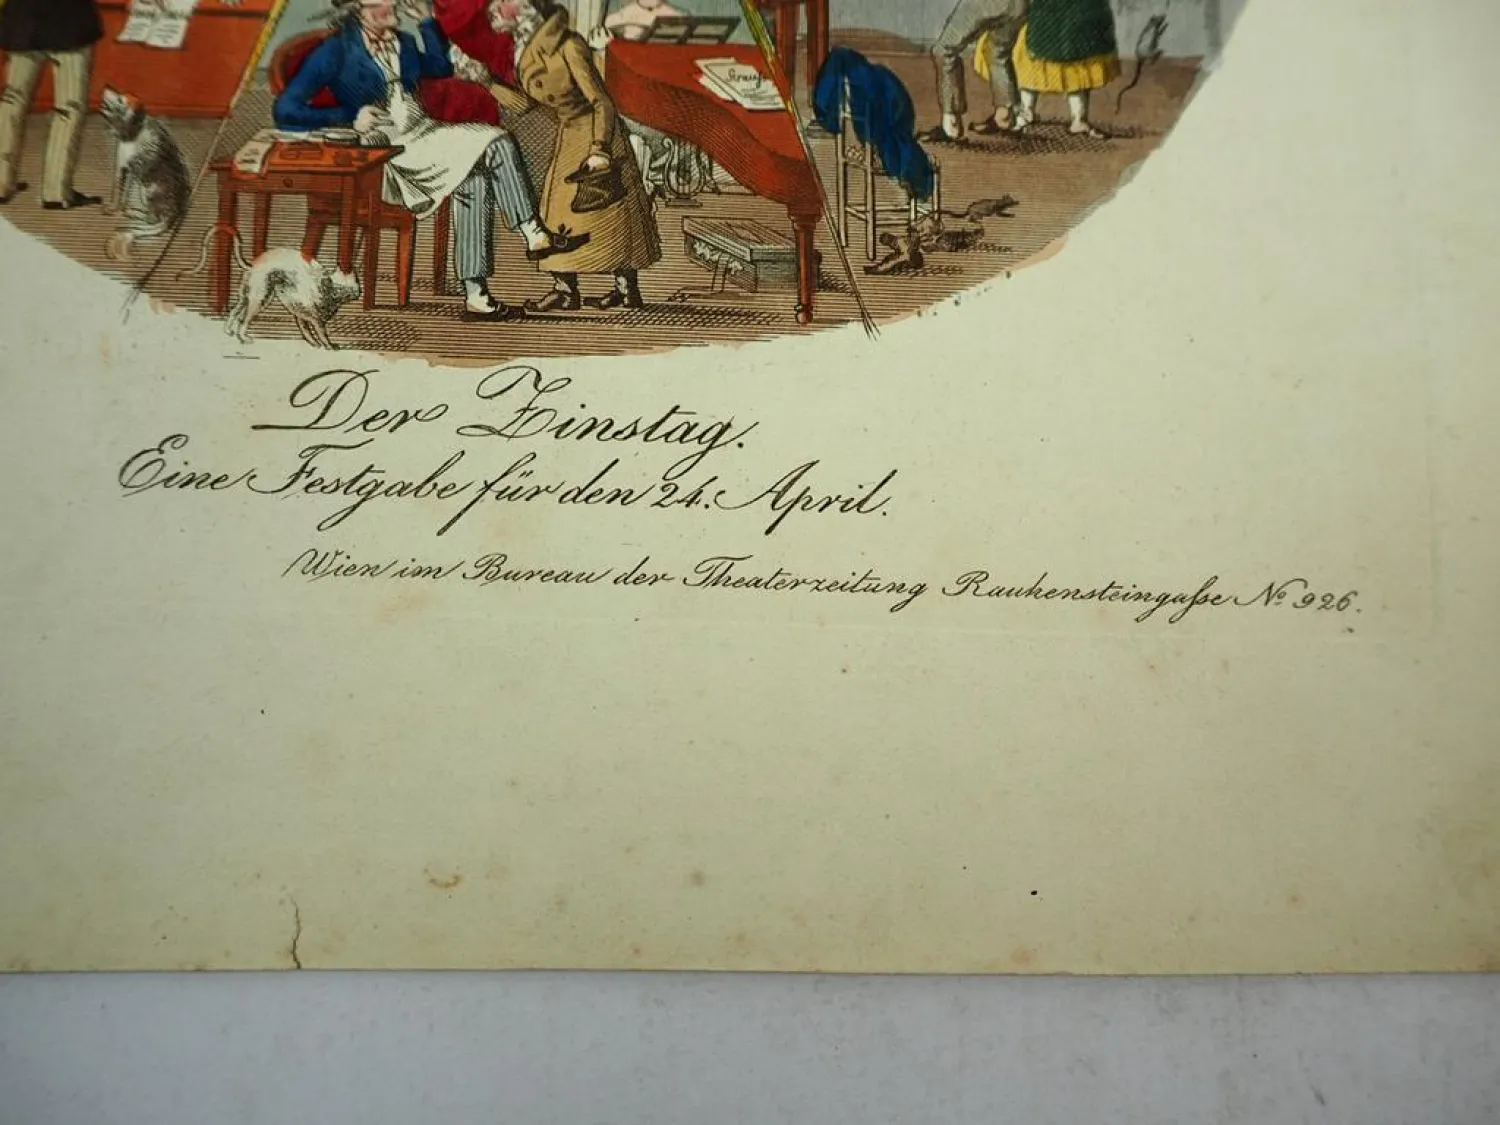 Strauß
Der Zinstag.
Eine Festgabe für den 24. April.
Wien im Bureau der Theaterzeitung Rauhensteingasse No. 926.